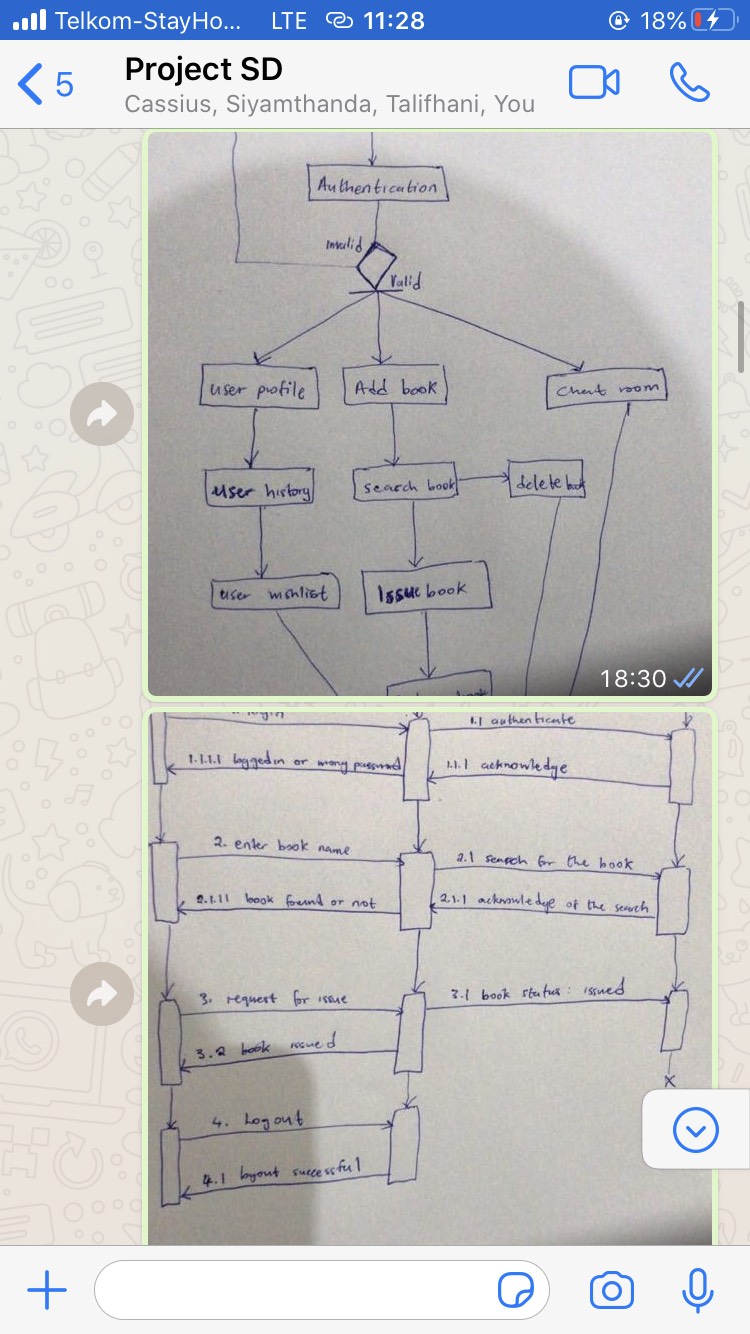 Telkom-StayHo... LTE 11:28 18%
5 Project SD
Cassius, Siyamthanda, Talifhani, You
Authentication
invalid
Valid
user profile Add book Chat room
user history search book delete book
user wishlist Issue book
18:30
login 1.1 authenticate
1.1.1.1 loggedin or wrong password 1.1.1 acknowledge
2. enter book name 2.1 search for the book
2.1.11 book found or not 2.1.1 acknowledge of the search
3. request for issue 3.1 book status: issued
3.2 book issued
x
4. Logout
4.1 logout successful